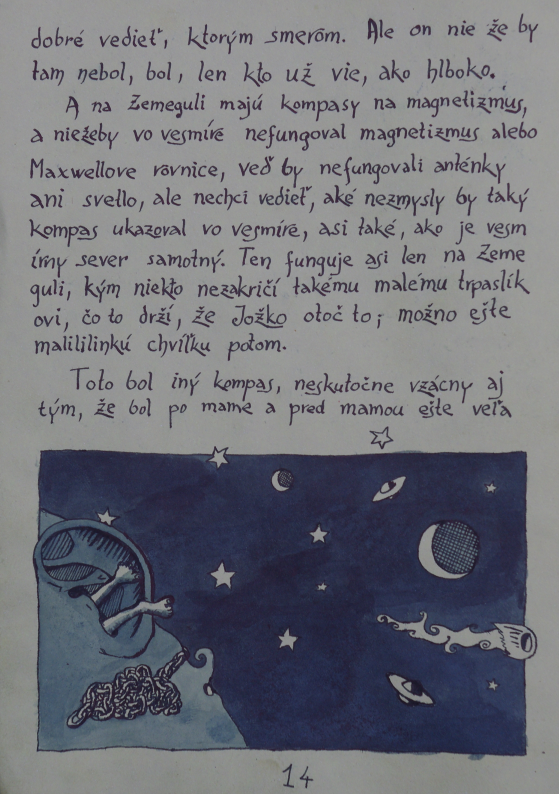 dobré vedieť, ktorým smerom. Ale on nie že by
tam nebol, bol, len kto už vie, ako hlboko.
A na Zemeguli majú kompasy na magnetizmus,
a niežeby vo vesmíre nefungoval magnetizmus alebo
Maxwellove rovnice, veď by nefungovali anténky
ani svetlo, ale nechci vedieť, aké nezmysly by taký
kompas ukazoval vo vesmíre, asi také, ako je vesm
írny sever samotný. Ten funguje asi len na Zeme
guli, kým niekto nezakričí takému malému trpaslík
ovi, čo to drží, že Jožko otoč to; možno ešte
malililinkú chvíľku potom.
Toto bol iný kompas, neskutočne vzácny aj
tým, že bol po mame a pred mamou ešte veľa
14